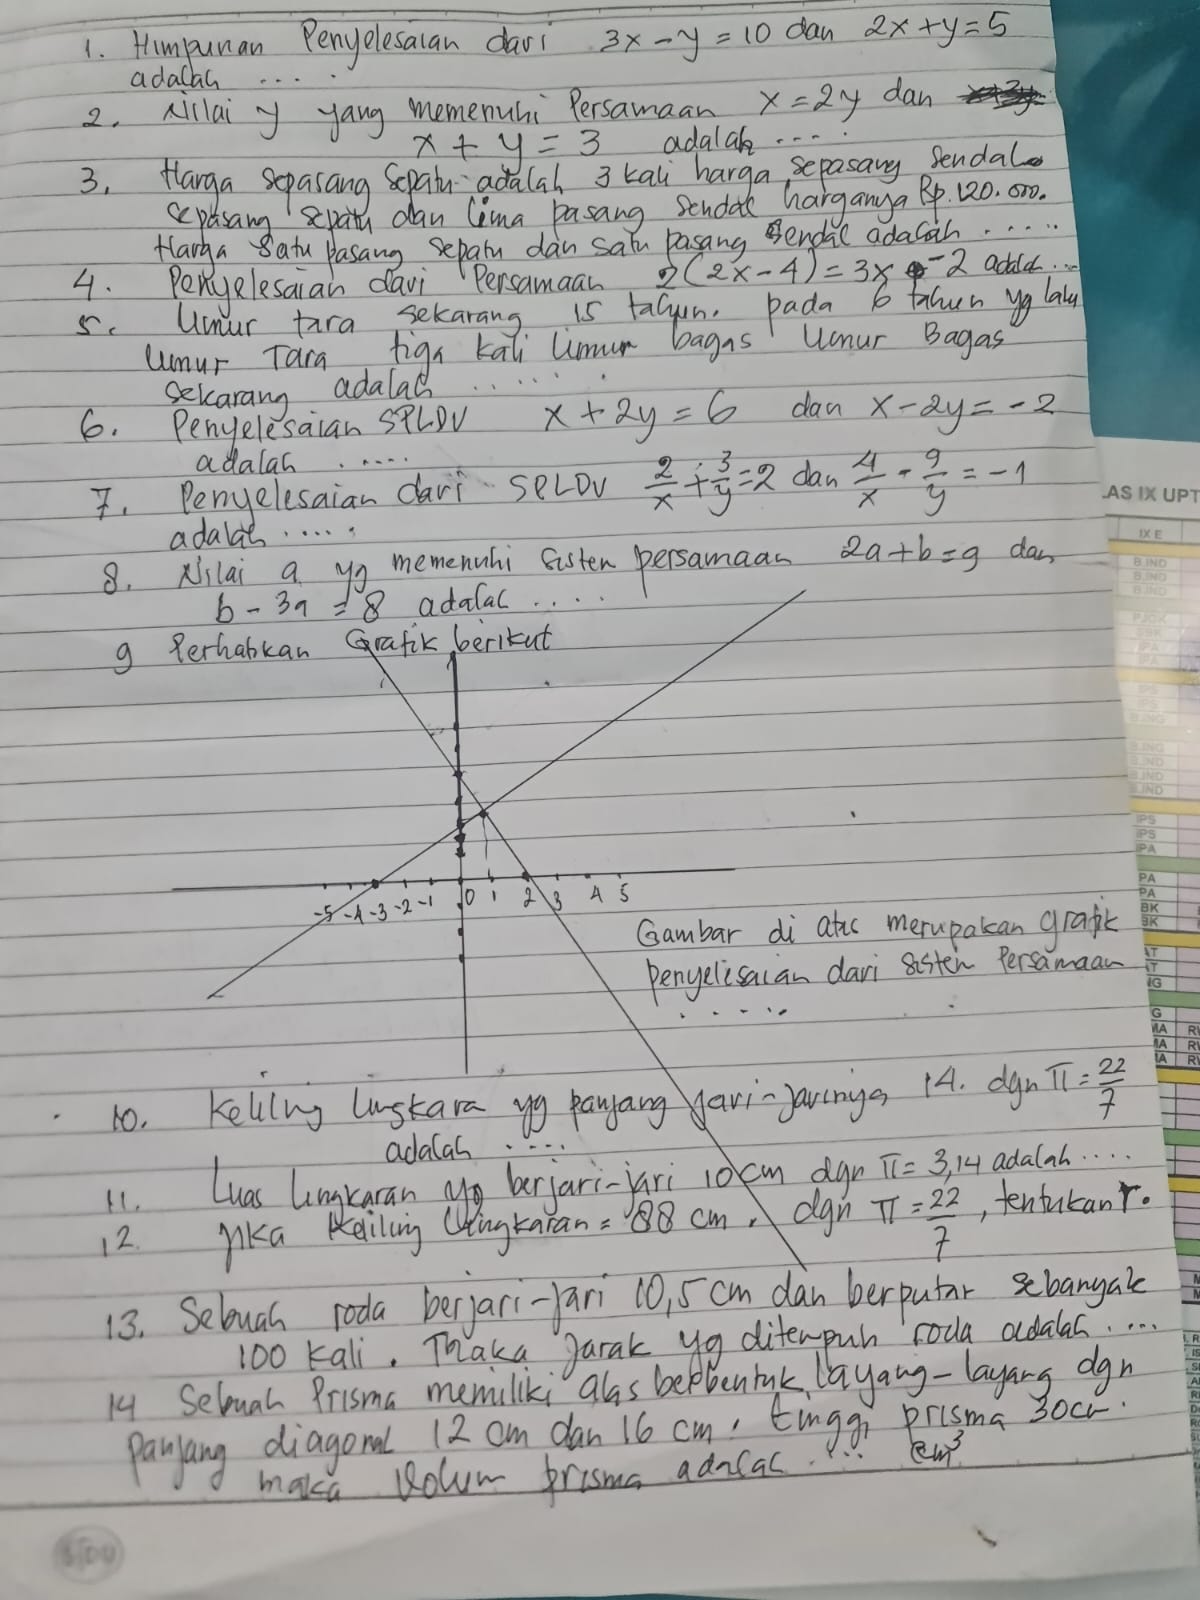 1. Himpunan Penyelesaian dari 3x - y = 10 dan 2x + y = 5
adalah ....
2. Nilai y yang memenuhi Persamaan x = 2y dan
x + y = 3 adalah ....
3. Harga sepasang sepatu adalah 3 kali harga sepasang sendal
sepasang sepatu dan lima pasang sendal harganya Rp. 120.000.
Harga satu pasang sepatu dan satu pasang sendal adalah .....
4. Penyelesaian dari Persamaan 2(2x - 4) = 3x - 2 adalah ...
5. Umur tara sekarang 15 tahun. pada 6 tahun yg lalu
Umur Tara tiga kali Umur bagas Umur Bagas
sekarang adalah ......
6. Penyelesaian SPLDV x + 2y = 6 dan x - 2y = -2
adalah .....
7. Penyelesaian dari SPLDV 2/x + 3/y = 2 dan 4/x - 9/y = -1
adalah .....
8. Nilai a yg memenuhi sistem persamaan 2a + b = 9 dan
b - 3a = 8 adalah ....
9 Perhatikan Grafik berikut
-5 -4 -3 -2 -1 0 1 2 3 4 5
Gambar di atas merupakan grafik
penyelisaian dari sistem Persamaan
.....
10. Keliling lingkara yg panjang jari-jarinya 14. dgn π = 22/7
adalah ....
11. Luas lingkaran yg berjari-jari 10 cm dgn π = 3,14 adalah ....
12. Jika Keliling lingkaran = 88 cm, dgn π = 22/7, tentukan r.
13. Sebuah roda berjari-jari 10,5 cm dan berputar sebanyak
100 kali. Maka Jarak yg ditempuh roda adalah ....
14 Sebuah Prisma memiliki alas berbentuk layang-layang dgn
panjang diagonal 12 cm dan 16 cm. tinggi prisma 30 cm.
maka Volum prisma adalah .... cm³
SIDU
LAS IX UPT
IX E
B.IND
B.IND
B.IND